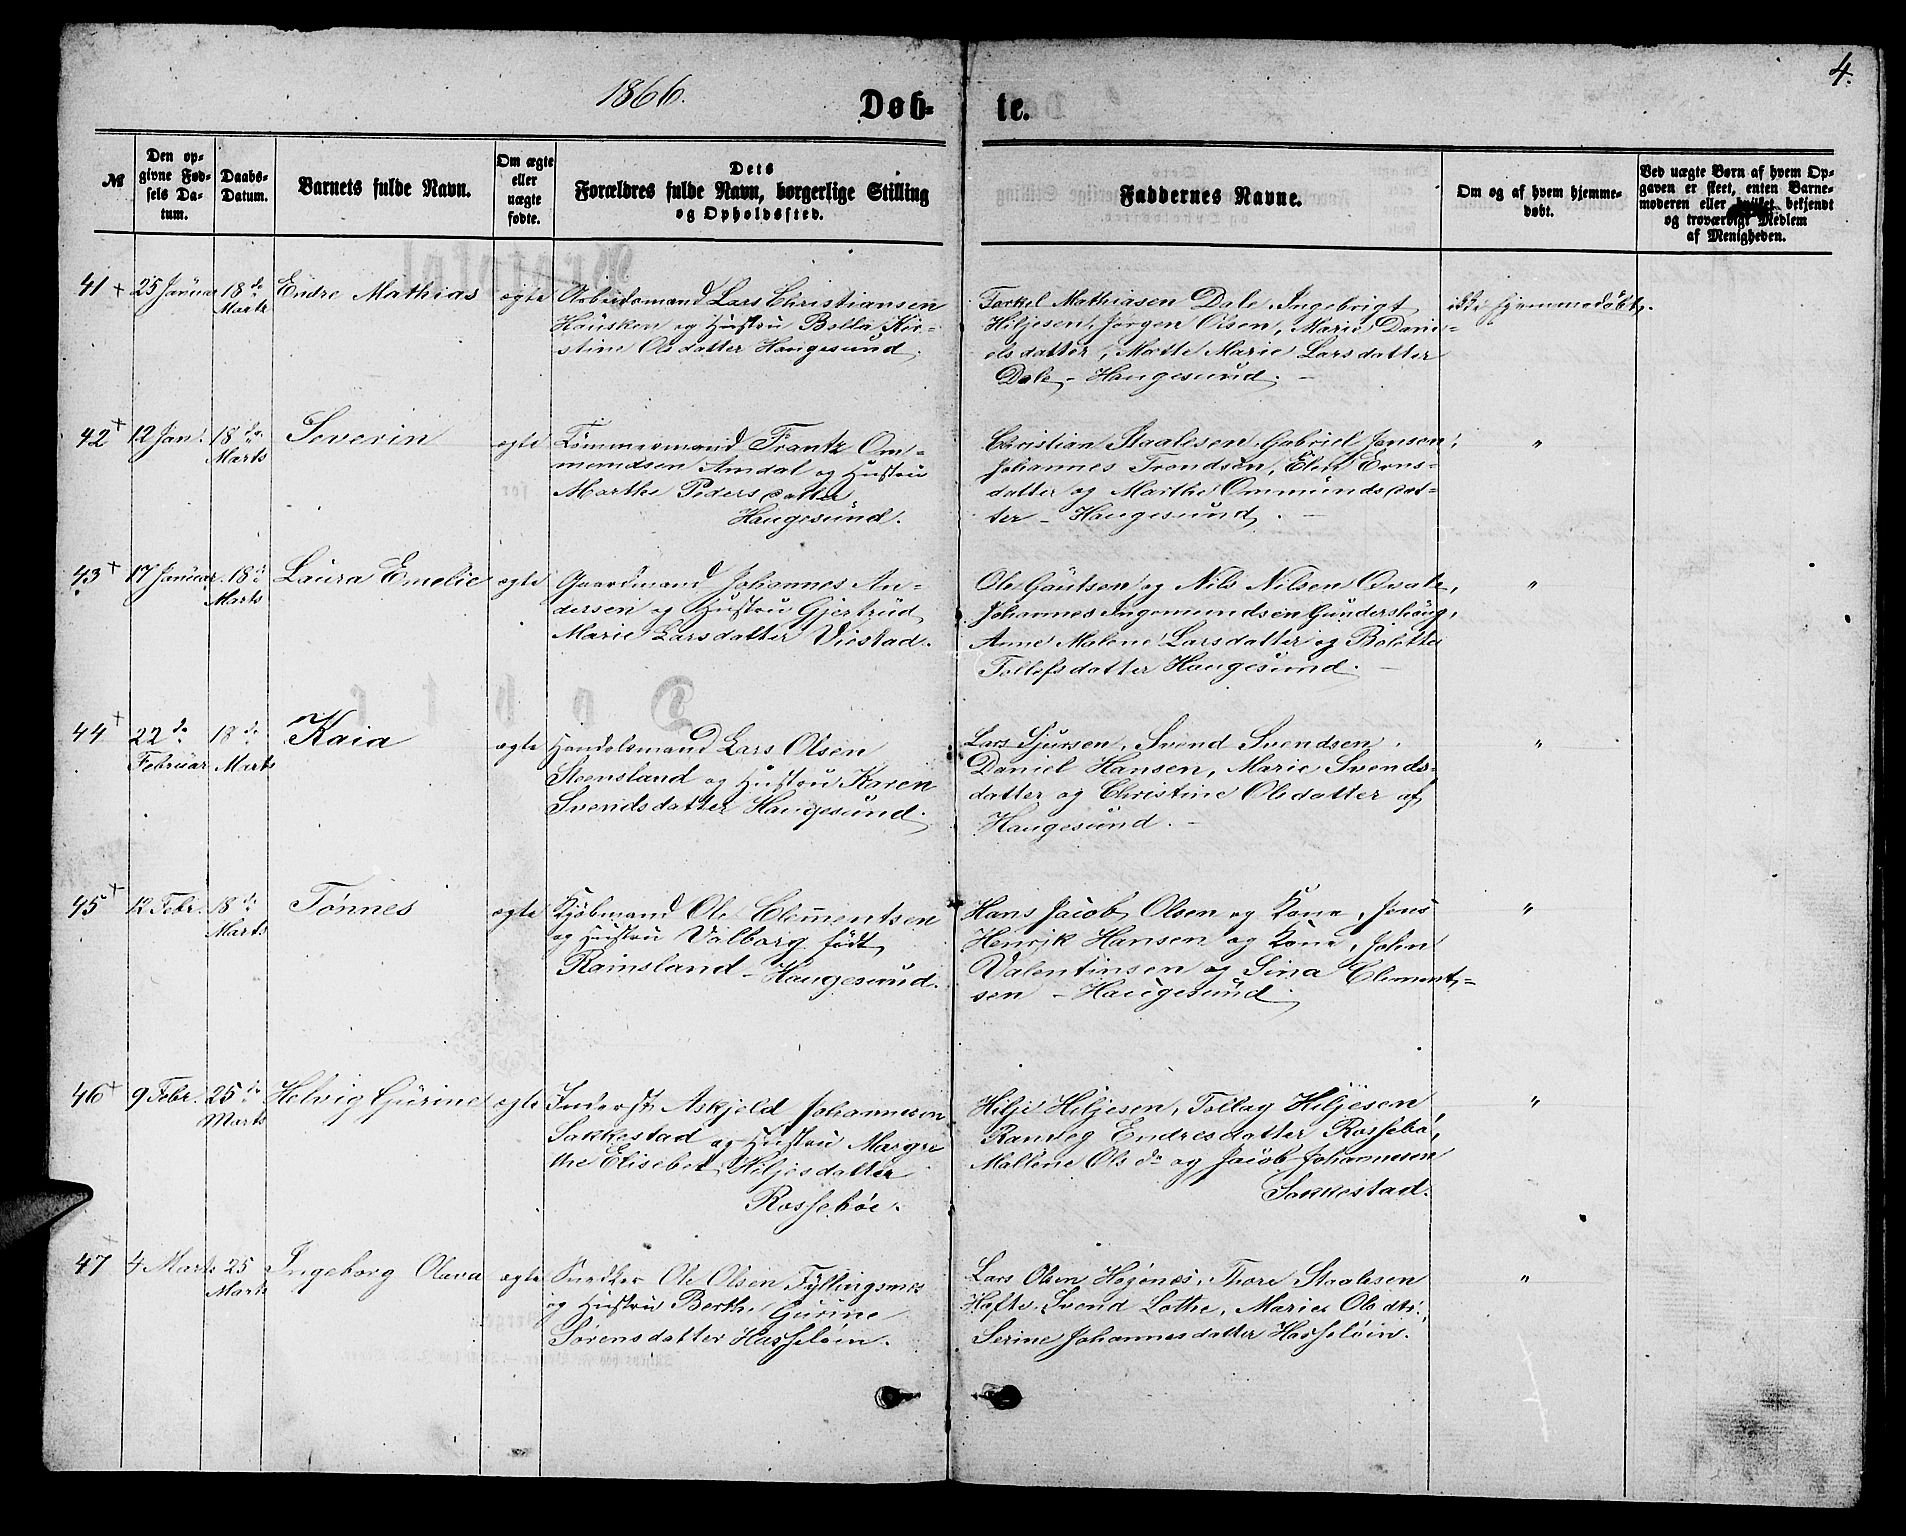 4.
1866.
Døb-
te.
№
Den op-
givne Fød-
sels Da-
tum.
Daabs-
Datum.
Barnets fulde Navn.
Om ægte
eller
uægte
fødte.
Dets
Forældres fulde Navn, borgerlige Stilling
og Opholdssted.
Faddernes Navne.
Om og af hvem hjemme-
døbt.
Ved uægte Børn af hvem Op-
gaven er skeet, enten Barne-
moderen eller hvilket bekjendt
og troværdigt Medlem
af Menigheden.
41 +
25 Januar
18de
Marts
Endre Mathias
egte
Arbeidsmand Lars Christiansen
Hausken og Hustru Bolla Kir-
stine Olsdatter Haugesund.
Torkel Mathiasen Dale, Ingebrigt
Hiljesen, Jørgen Olsen, Marie Dani-
elsdatter, Mette Marie Larsdatter
Dale - Haugesund. -
ikke hjemmedøbt.
42 +
12 Jan.
18de
Marts
Severin
egte
Tømmermand Frantz Om-
mundsen Amdal og Hustru
Marthe Pedersdatter
Haugesund.
Christian Staalesen, Gabriel Jansen,
Johannes Trondsen, Elen Erns-
datter og Marthe Ommundsdat-
ter - Haugesund. -
"
43 +
17 Januar
18de
Marts
Laura Emelie
egte
Gaardmand Johannes An-
dersen og Hustru Gjertrud
Marie Larsdatter Vistad.
Ole Gautsen og Nils Nilsen Qvale,
Johannes Ingemundsen Gundershaug,
Anne Malene Larsdatter og Bolette
Tollefsdatter Haugesund. -
"
44 +
22de
Februar
18de
Marts
Kaia
egte
Handelsmand Lars Olsen
Steensland og Hustru Karen
Svendsdatter Haugesund.
Lars Sjursen, Svend Svendsen,
Daniel Hansen, Marie Svends-
datter og Christine Olsdatter af
Haugesund. -
"
45 +
12 Febr.
18de
Marts
Tønnes
egte
Kjøbmand Ole Clementsen
og Hustru Valborg født
Ramsland - Haugesund.
Hans Jacob Olsen og Kone, Jens
Henrik Hansen og Kone, John
Valentinsen og Sina Clement-
sen - Haugesund.
"
46 +
9 Febr.
25de
Marts
Helvig Gurine
egte
Inderst Askjeld Johannesen
Sakkestad og Hustru Margre
the Elisebet Hiljesdatter
Rossebøe.
Hilje Hiljesen, Tollag Hiljesen
Ranveg Endresdatter Rossebø,
Mallene Olsdr og Jacob Johannesen
Sakkestad.
"
47 +
4 Marts
25
Marts
Ingeborg Olava
egte
Snedker Ole Olsen Fyllingsnes
og Hustru Berthe Gurine
Sørensdatter Hasseløen.
Lars Olsen Højenes, Thore Staalesen
Hofte, Svend Lothe, Marie Olsdtr.,
Serine Johannesdatter Hasseløin.
"